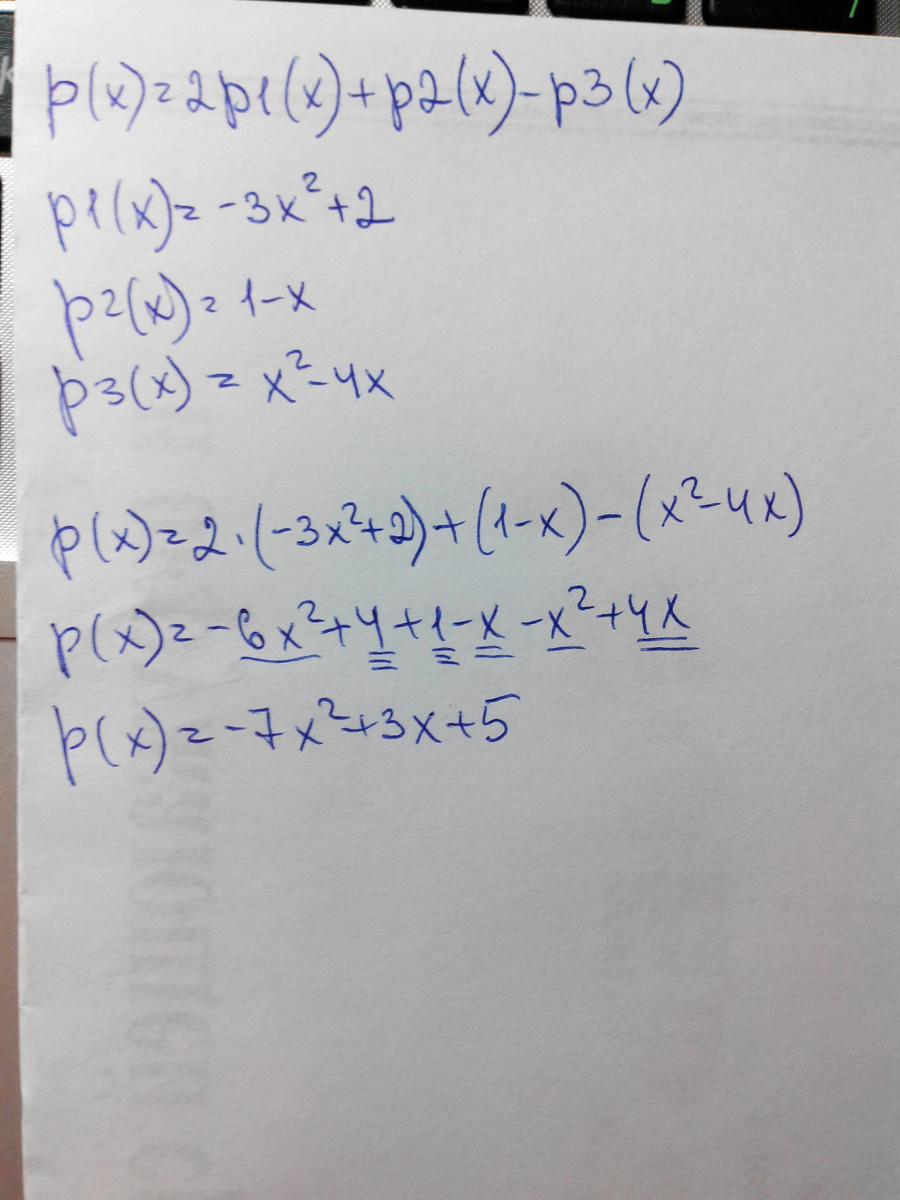 p(x)=2p1(x)+p2(x)-p3(x)
p1(x)=-3x²+2
p2(x)=1-x
p3(x)=x²-4x
p(x)=2·(-3x²+2)+(1-x)-(x²-4x)
p(x)=-6x²+4+1-x-x²+4x
p(x)=-7x²+3x+5